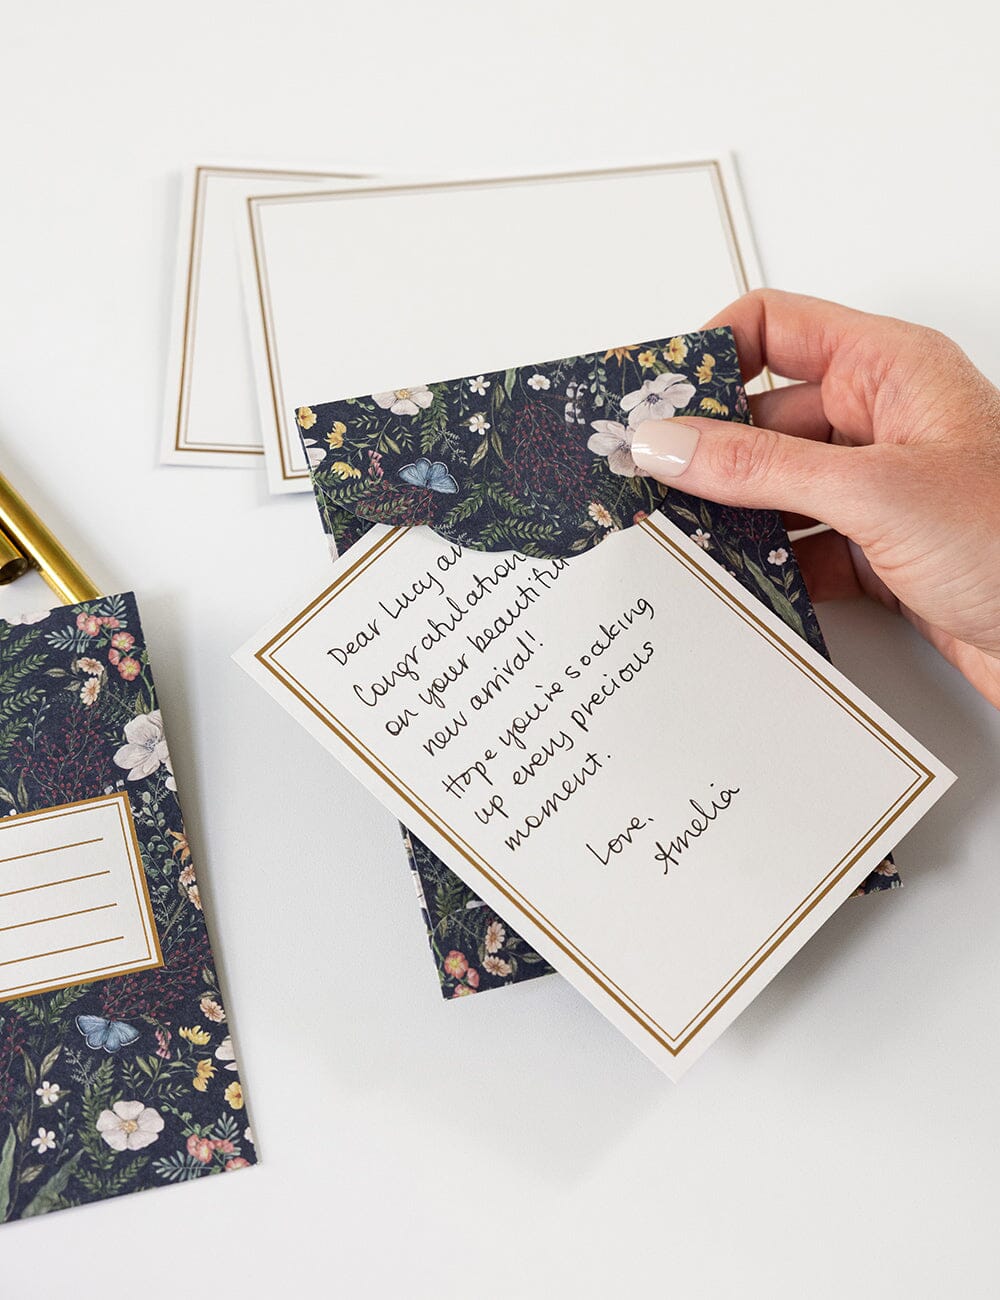 Dear Lucy an
Congratulation
on your beautiful
new arrival!
Hope you're soaking
up every precious
moment.
Love,
Amelia